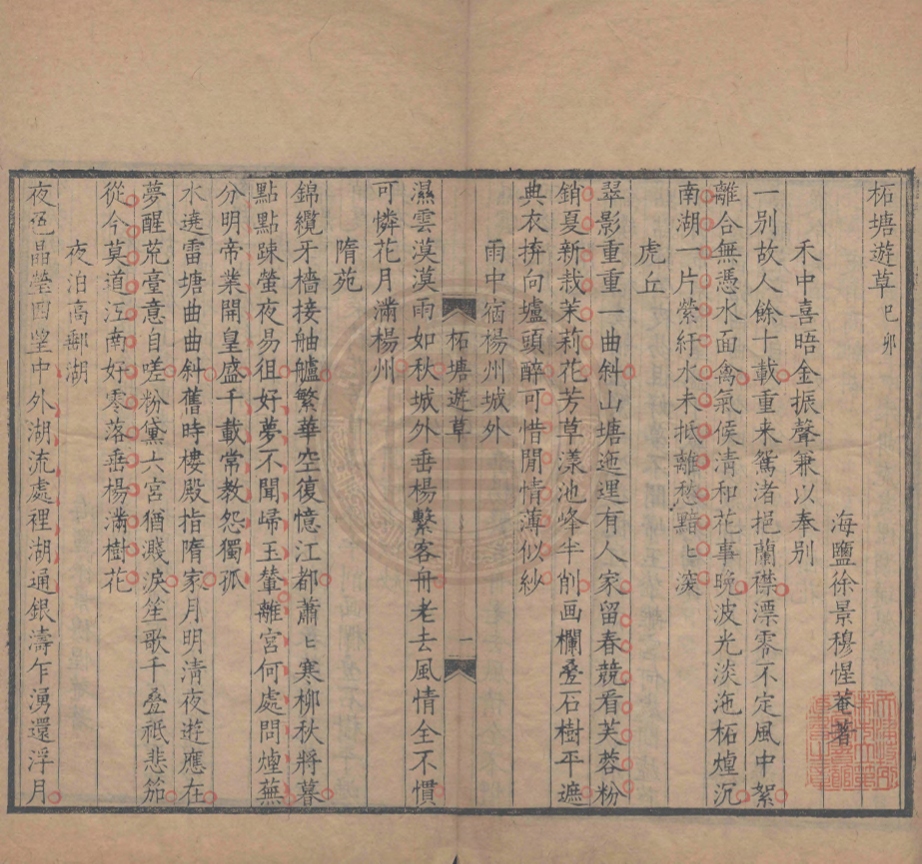 柘塘遊草 己卯
海鹽徐景穆惺菴著
禾中喜晤金振聲兼以奉別
一別故人餘十載重来鴛渚挹蘭襟漂零不定風中絮
離合無憑水面禽氣候清和花事晚波光淡沲柘煙沉
南湖一片縈紆水未抵離愁黯〻深
虎丘
翠影重重一曲斜山塘迤邐有人家留春競看芙蓉粉
銷夏新栽茉莉花芳草漾池峰半削画欄叠石樹平遮
典衣拚向壚頭醉可惜閒情薄似紗
雨中宿楊州城外
濕雲漠漠雨如秋城外垂楊繫客舟老去風情全不慣
可憐花月滿楊州
隋苑
錦纜牙檣接舳艫繁華空復憶江都蕭〻寒柳秋將暮
點點踈螢夜易徂好夢不聞歸玉輦離宮何處問煙蕪
分明帝業開皇盛千載常教怨獨孤
水遶雷塘曲曲斜舊時樓殿指隋家月明清夜遊應在
夢醒荒臺意自嗟粉黛六宮猶濺淚笙歌千叠祗悲笳
從今莫道江南好零落垂楊滿樹花
夜泊高郵湖
夜色晶瑩四望中外湖流處裡湖通銀濤乍湧還浮月
柘塘遊草
一